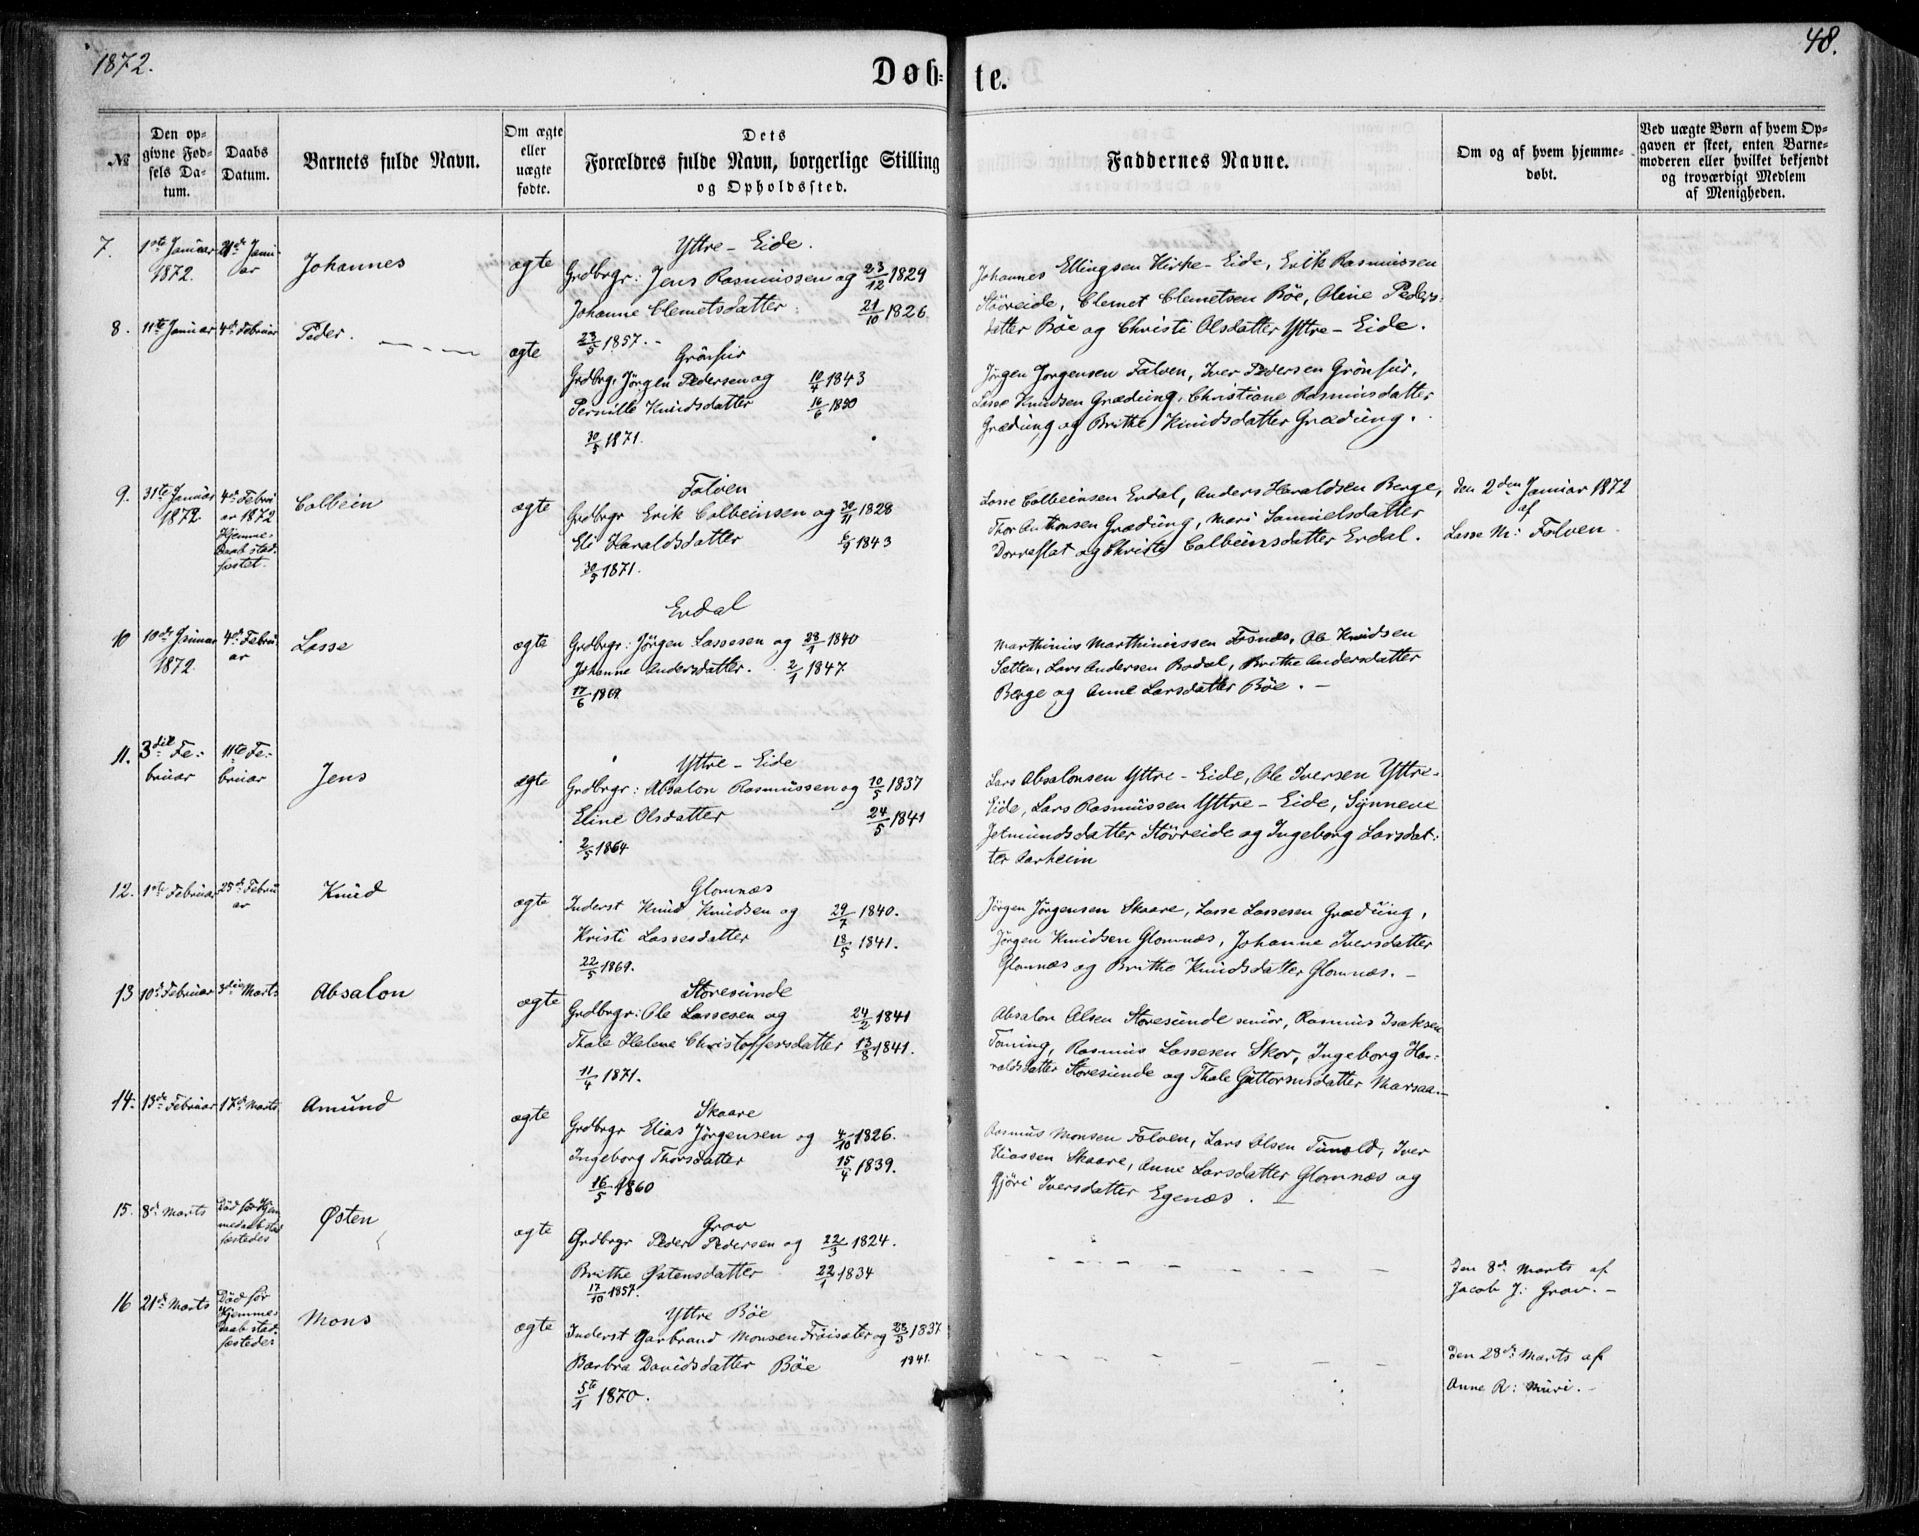 1872.
48.
Døb-te.
№
Den op-
givne Fød-
sels Da-
tum.
Daabs
Datum.
Barnets fulde Navn.
Om ægte
eller
uægte
fødte.
Dets
Forældres fulde Navn, borgerlige Stilling
og Opholdssted.
Faddernes Navne.
Om og af hvem hjemme-
døbt.
Ved uægte Børn af hvem Op-
gaven er skeet, enten Barne-
moderen eller hvilket bekjendt
og troværdigt Medlem
af Menigheden.
7.
1ste Januar
1872.
21de Janu-
ar
Johannes
ægte
Yttre-Eide.
Grdbrgr: Jens Rasmussen og 23/12 1829
Johanne Clemetsdatter 21/10 1826
23/5 1857.-
Johannes Ellingsen Kirke-Eide, Erik Rasmussen
Støvreide, Clemet Clemetsen Bøe, Oline Peders-
datter Bøe og Christi Olsdatter Yttre-Eide.
8.
11te Januar
4de Februar
Peder.
ægte
Grönfur
Grdbrgr Jörgen Pedersen og 10/4 1843
Pernille Knudsdatter 16/6 1850
30/5 1871.
Jörgen Jörgensen Folven, Iver Pedersen Grönfur,
Lasse Knudsen Grædung, Christiane Rasmusdatter
Grædung og Brithe Knudsdatter Grædung.
9.
31te Januar
1872
4de Febru
ar 1872
Hjemme-
Daab stad-
fæstet.
Colbein
ægte
Folven
Grdbrgr Erik Colbeinsen og 30/11 1828
Eli Haraldsdatter 6/9 1843
30/5 1871.
Lasse Colbeinsen Erdal, Anders Haraldsen Berge,
Thor Anthonsen Grædung, Mari Samuelsdatter
Dorreflat og Christi Colbeinsdatter Erdal.
den 2den Januar 1872
af
Lasse M: Folven.
10
10de Januar
1872.
4de Febru-
ar
Lasse
ægte
Erdal
Grdbrgr: Jörgen Lassesen og 28/1 1840
Johanne Andersdatter. 2/1 1847
17/6 1869
Marthinus Marthinussen Fosnæs, Ole Knudsen
Sætten, Lars Andersen Bødal, Brithe Andersdatter
Berge og Anne Larsdatter Bøe.-
11.
3die Fe-
bruar
11te Fe-
bruar
Jens
ægte
Yttre-Eide
Grdbrgr: Absalon Rasmussen og 10/5 1837
Eline Olsdatter 24/5 1841
2/5 1864
Lars Absalonsen Yttre-Eide, Ole Iversen Yttre-
Eide, Lars Rasmussen Yttre-Eide, Synneve
Jetmundsdatter Støvreide og Ingeborg Larsdat-
ter Aarheim
12.
1ste Februar
25de Febru
ar
Knud
ægte
Glomnæs
Inderst Knud Knudsen og 29/7 1840.
Kristi Lassesdatter 18/5 1841.
22/5 1869.
Jörgen Jörgensen Skaare, Lasse Lassesen Grædung,
Jörgen Knudsen Glomnæs, Johanne Iversdatter
Glomnæs og Brithe Knudsdatter Glomnæs.-
13
10de Februar
3die Marts
Absalon
ægte
Storesunde
Grdbrgr: Ole Lassesen og 24/2 1841
Thale Helene Christoffersdatter 13/8 1841.
11/4 1871.
Absalon Olsen Storesunde senior, Rasmus Isaksen
Toning, Rasmus Lassesen Skor, Ingeborg Har-
raldsdatter Storesunde og Thale Guttormsdatter Marsaa.-
14.
13de Februar
17de Marts
Amund
ægte
Skaare
Grdbrgr Elias Jörgensen og 4/10 1826.
Ingeborg Thorsdatter 15/4 1839.
16/5 1860
Rasmus Monsen Folven, Lars Olsen Tunold, Iver
Eliassen Skaare, Anne Larsdatter Glomnæs og
Gjöri Iversdatter Egenæs.
15.
8de Marts
Død før Hjem
medaab stad
fæstedes
Østen
ægte
Grov
Grdbrgr Peder Pedersen og 22/3 1824.
Brithe Østensdatter 22/1 1834
17/10 1857.
Den 8de Marts af
Jacob J: Grov.-
16
21de Marts
Død før
Hjemme-
Daab stad-
fæstedes
Mons
ægte
Yttre Bøe
Inderst Garbrand Monsen Fröisæter og 23/3 1837
Barbra Davidsdatter Bøe 1841.
5te/1 1870.
Den 28de Marts af
Anne R: Muri.-